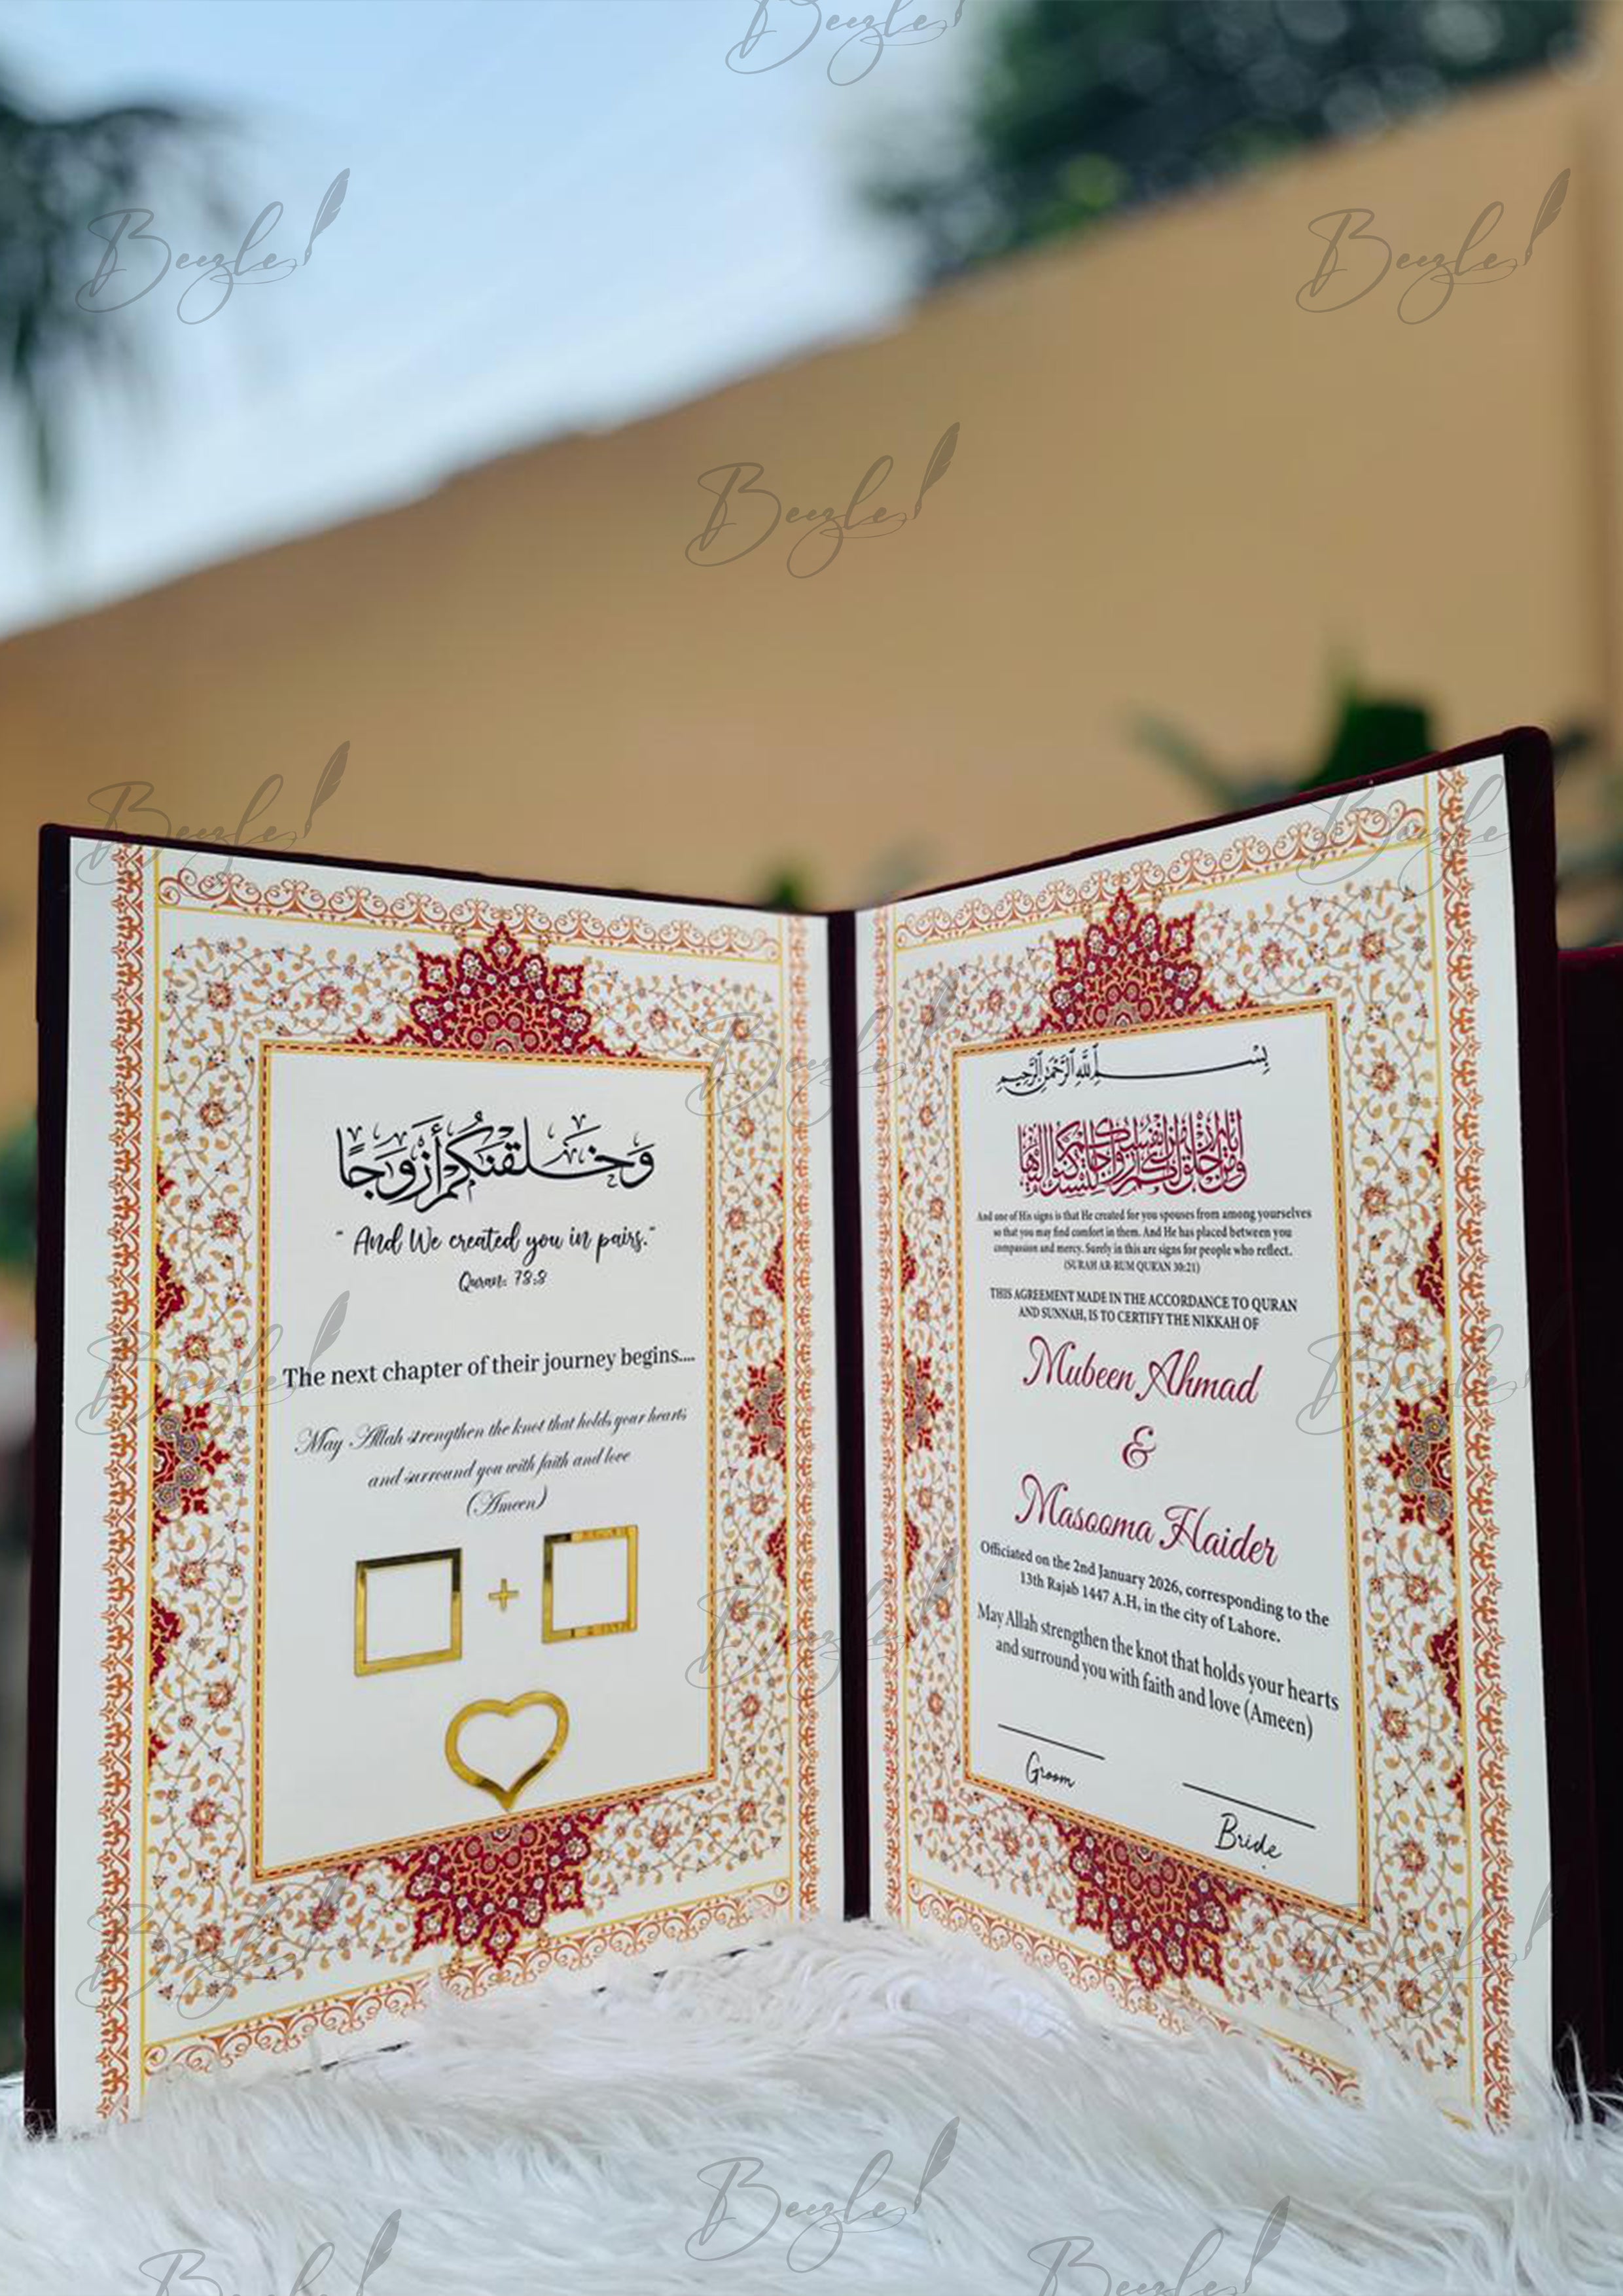 وَخَلَقْنَٰكُمْ أَزْوَٰجًا
" And We created you in pairs."
Quran: 78:8
The next chapter of their journey begins....
May Allah strengthen the knot that holds your hearts
and surround you with faith and love
(Ameen)
+
بِسْمِ اللَّهِ الرَّحْمَٰنِ الرَّحِيمِ
And one of His signs is that He created for you spouses from among yourselves
so that you may find comfort in them. And He has placed between you
compassion and mercy. Surely in this are signs for people who reflect.
(SURAH AR-RUM QURAN 30:21)
THIS AGREEMENT MADE IN THE ACCORDANCE TO QURAN
AND SUNNAH, IS TO CERTIFY THE NIKKAH OF
Mubeen Ahmad
&
Masooma Haider
Officiated on the 2nd January 2026, corresponding to the
13th Rajab 1447 A.H, in the city of Lahore.
May Allah strengthen the knot that holds your hearts
and surround you with faith and love (Ameen)
Groom
Bride
Beezle